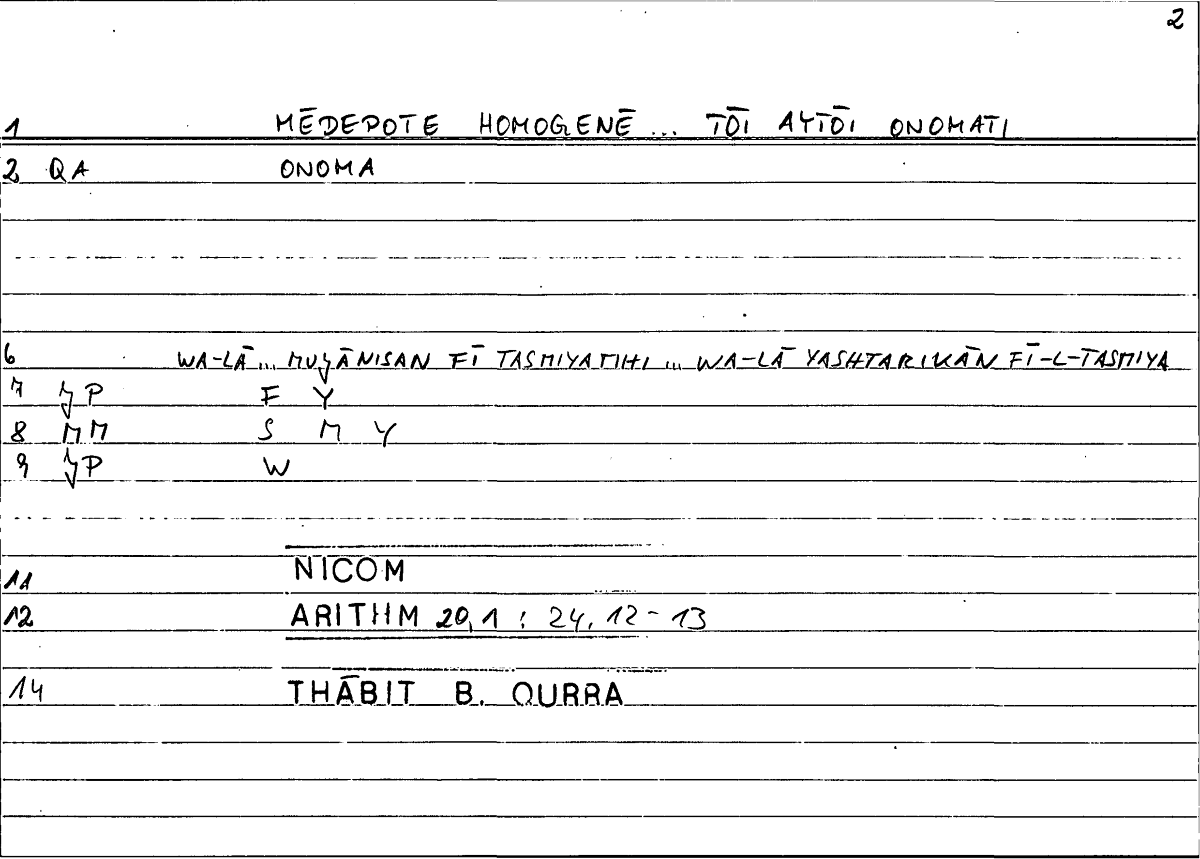 2
1 MĒDEPOTE HOMOGENĒ ... TŌI AYTŌI ONOMATI
2 QA ONOMA
6 WA-LĀ ... MUǮĀNISAN FĪ TASMIYATIHI ... WA-LĀ YASHTARIKĀN FĪ-L-TASMIYA
7 ǮP F Y
8 MM S M Y
9 ǮP W
11 NICOM
12 ARITHM 20,1 : 24,12-13
14 THĀBIT B. QURRA